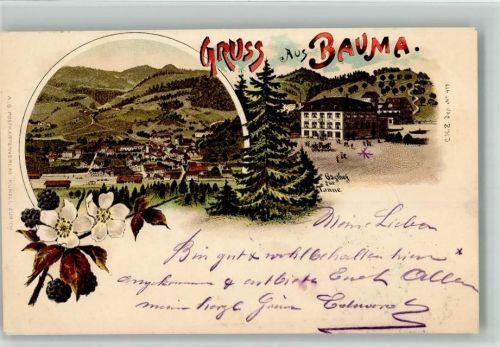 GRUSS AUS BAUMA.
Gasthof
zur
Tanne
Meine Lieben
Bin gut & wohlbehalten hier
angekommen & entbiete Euch Allen
mein herzl